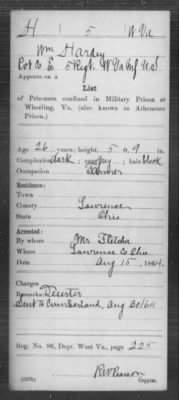 H 5 W Va
Wm Hardey
Pvt Co E 5 Regt. W Va Inf U S
Appears on a
List
of Prisoners confined in Military Prison at
Wheeling, Va. (also known as Atheneum
Prison.)
Age 26 years; height, 5 ft. 9 in.
Complexion dark; eyes grey; hair black
Occupation Farmer
Residence:
Town
County Lawrence
State Ohio
Arrested:
By whom Mr Fletcher
Where Lawrence Co Ohio.
Date Aug 15, 1864.
Charges
Remarks: Deserter
Sent to Cumberland, Aug 30/64
Reg. No. 96, Dept. West Va., page 225
Copyist.